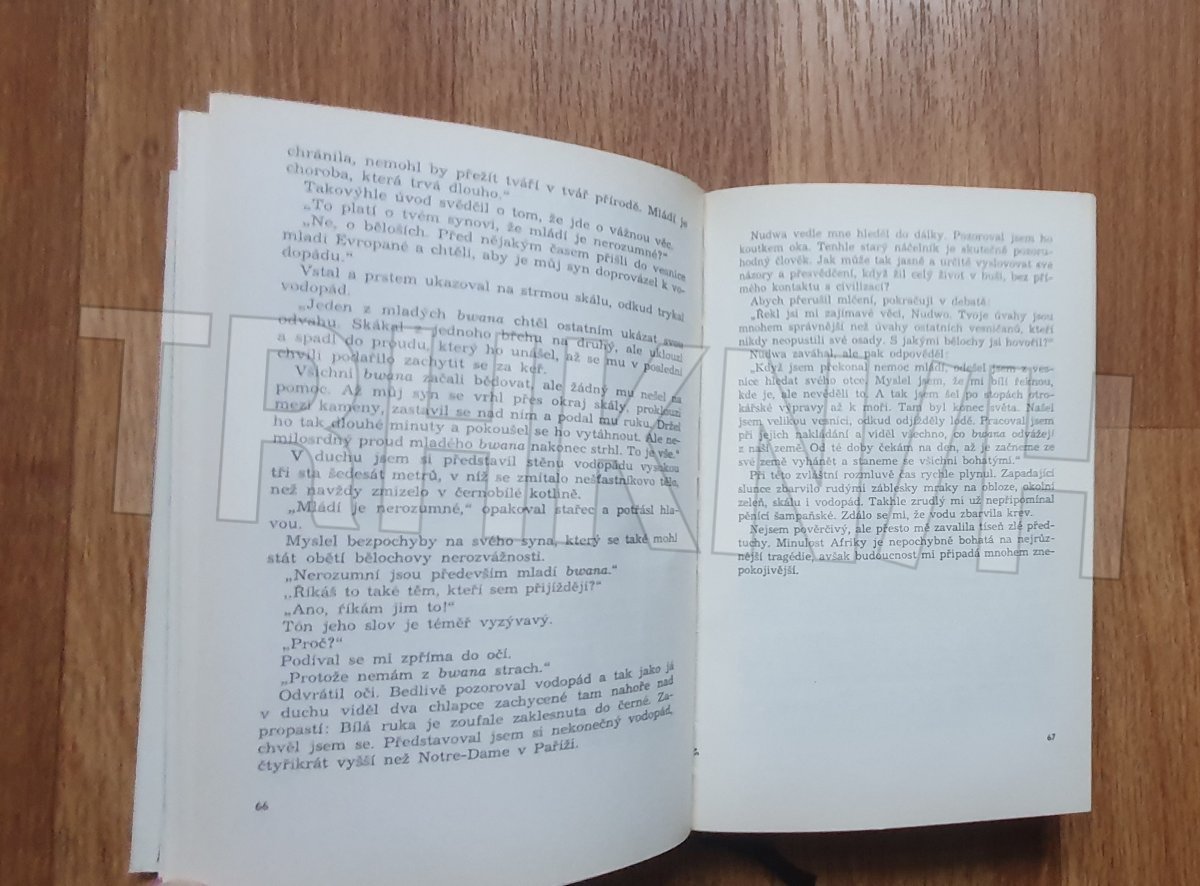 chránila, nemohl by přežít tváří v tvář přírodě. Mládí je
choroba, která trvá dlouho."
Takovýhle úvod svědčil o tom, že jde o vážnou věc.
„To platí o tvém synovi, že mládí je nerozumné?"
„Ne, o běloších. Před nějakým časem přišli do vesnice
mladí Evropané a chtěli, aby je můj syn doprovázel k vo-
dopádu."
Vstal a prstem ukazoval na strmou skálu, odkud trykal
vodopád.
„Jeden z mladých bwana chtěl ostatním ukázat svou
odvahu. Skákal z jednoho břehu na druhý, ale uklouzl
a spadl do proudu, který ho unášel, až se mu v poslední
chvíli podařilo zachytit se za keř.
Všichni bwana začali bědovat, ale žádný mu nešel na
pomoc. Až můj syn se vrhl přes okraj skály, proklouzl
mezi kameny, zastavil se nad ním a podal mu ruku. Držel
ho tak dlouhé minuty a pokoušel se ho vytáhnout. Ale ne-
milosrdný proud mladého bwana nakonec strhl. To je vše."
V duchu jsem si představil stěnu vodopádu vysokou
tři sta šedesát metrů, v níž se zmítalo nešťastníkovo tělo,
než navždy zmizelo v černobílé kotlině.
„Mládí je nerozumné," opakoval stařec a potřásl hla-
vou.
Myslel bezpochyby na svého syna, který se také mohl
stát obětí bělochovy nerozvážnosti.
„Nerozumní jsou především mladí bwana."
„Říkáš to také těm, kteří sem přijíždějí?"
„Ano, říkám jim to!"
Tón jeho slov je téměř vyzývavý.
„Proč?"
Podíval se mi zpříma do očí.
„Protože nemám z bwana strach."
Odvrátil oči. Bedlivě pozoroval vodopád a tak jako já
v duchu viděl dva chlapce zachycené tam nahoře nad
propastí: Bílá ruka je zoufale zaklesnuta do černé. Za-
chvěl jsem se. Představoval jsem si nekonečný vodopád,
čtyřikrát vyšší než Notre-Dame v Paříži.
66
Nudwa vedle mne hleděl do dálky. Pozoroval jsem ho
koutkem oka. Tenhle starý náčelník je skutečně pozoru-
hodný člověk. Jak může tak jasně a určitě vyslovovat své
názory a přesvědčení, když žil celý život v buši, bez pří-
mého kontaktu s civilizací?
Abych přerušil mlčení, pokračuji v debatě:
„Řekl jsi mi zajímavé věci, Nudwo. Tvoje úvahy jsou
mnohem správnější než úvahy ostatních vesničanů, kteří
nikdy neopustili své osady. S jakými bělochy jsi hovořil?"
Nudwa zaváhal, ale pak odpověděl:
„Když jsem překonal nemoc mládí, odešel jsem z ves-
nice hledat svého otce. Myslel jsem, že mi bílí řeknou,
kde je, ale nevěděli to. A tak jsem šel po stopách otro-
kářské výpravy až k moři. Tam byl konec světa. Našel
jsem velikou vesnici, odkud odjížděly lodě. Pracoval jsem
při jejich nakládání a viděl všechno, co bwana odvážejí
z naší země. Od té doby čekám na den, až je začneme ze
své země vyhánět a staneme se všichni bohatými."
Při této zvláštní rozmluvě čas rychle plynul. Zapadající
slunce zbarvilo rudými záblesky mraky na obloze, okolní
zeleň, skálu i vodopád. Takhle zrudlý mi už nepřipomínal
pěnící šampaňské. Zdálo se mi, že vodu zbarvila krev.
Nejsem pověrčivý, ale přesto mě zavalila tíseň zlé před-
tuchy. Minulost Afriky je nepochybně bohatá na nejrůz-
nější tragédie, avšak budoucnost mi připadá mnohem zne-
pokojivější.
67
TRHKNIH